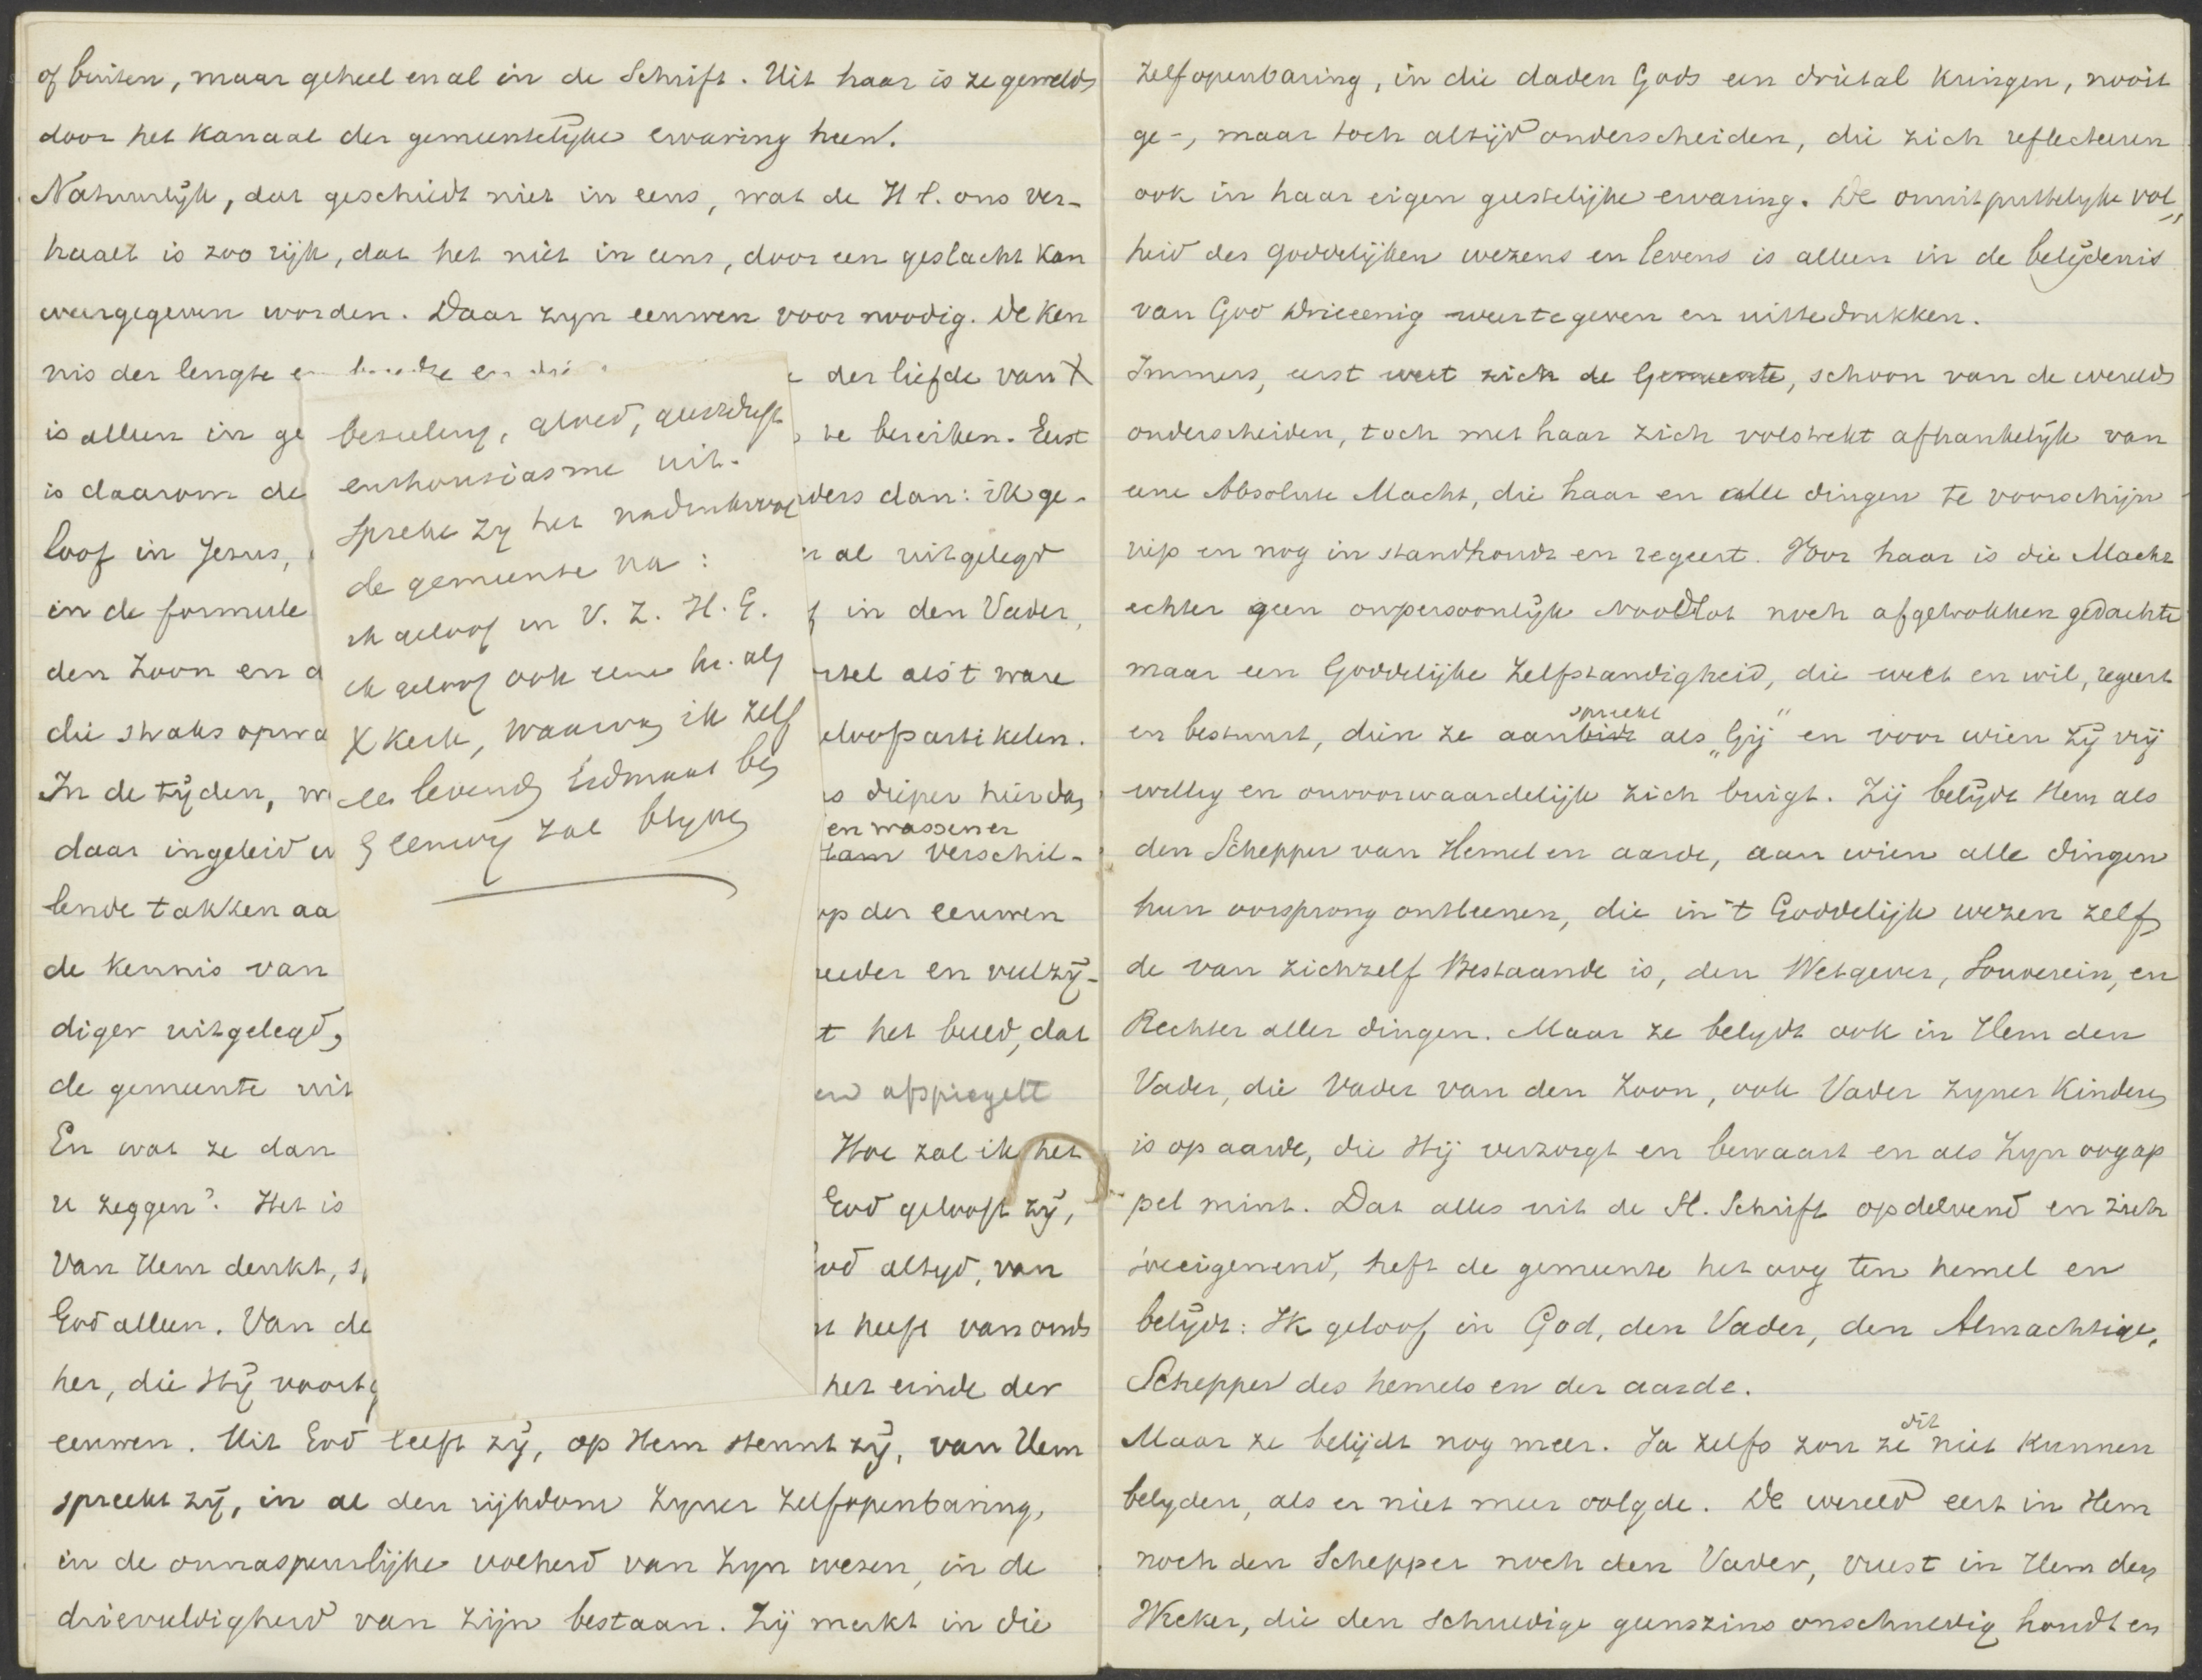 of buiten, maar geheel en al in de Schrift. Uit haar is ze geweld
door het kanaal der gemeentelijke ervaring heen.
Natuurlijk, dat geschiedt niet in eens, wat de H S. ons ver-
haalt is zoo rijk, dat het niet in eens, door een geslacht kan
weergegeven worden. Daar zyn eeuwen voor noodig. De ken
nis der lengte en breedte en die
der liefde van X
is alleen in ge
te bereiken. Eerst
is daarom de
ders dan: ik ge-
loof in Jesus,
al uitgelegd
in de formule
in den Vader,
den Zoon en d
rtel als 't ware
die straks opwa
eloofsartikelen.
In de tijden, w
s dieper hierda
en wassener
daar ingeleid w
zam verschil-
lende takken aa
op der eeuwen
de kennis van
reeder en veelzij-
diger uitgelegd,
t het beeld, dat
de gemeente uit
en afspiegelt
En wat ze dan
Hoe zal ik het
u zeggen? Het is
God gelooft zij,
Van Hem denkt, s
od altyd, van
God alleen. Van de
t heeft van ouds
her, die Hij voort
het einde der
eeuwen. Uit God leeft zij, op Hem steunt zij, van Hem
spreekt zij, in al den rijkdom Zyner Zelfopenbaring,
in de onnaspeurlijke volheid van Zyn wezen, in de
drievuldigheid van Zijn bestaan. Zij merkt in die
bezieling, gloed, geestdrift
enthousiasme uit.
Spreke zij het nadrukvol
de gemeente na:
ik geloof in V. Z. H. G.
ik geloof ook eene hei. alg
X kerk, waarvan ik zelf
een levend lidmaat ben
& eeuwig zal blijven
Zelfopenbaring, in die daden Gods een drietal kringen, nooit
ge-, maar toch altijd onderscheiden, die zich reflecteeren
ook in haar eigen geestelijke ervaring. De onuitputtelyke vol„
heid des goddelijken wezens en levens is alleen in de belijdenis
van God Drieeenig weer te geven en uittedrukken.
Immers, eerst weet zich de Gemeente, schoon van de wereld
onderscheiden, toch met haar zich volstrekt afhankelijk van
eene Absolute Macht, die haar en alle dingen te voorschijn
riep en nog in standhoudt en regeert. Voor haar is die Macht
echter geen onpersoonlijk Noodlot noch afgetrokken gedachte
maar een Goddelijke Zelfstandigheid, die weet en wil, regeert
spreekt
en bestuurt, dien ze aanbidt als „Gij" en voor wien zij vrij
willig en onvoorwaardelijk zich buigt. Zij belijdt Hem als
den Schepper van Hemel en aarde, aan wien alle dingen
hun oorsprong ontleenen, die in 't Goddelijk wezen zelf
de van zichzelf Bestaande is, den Wetgever, Souverein, en
Rechter aller dingen. Maar ze belydt ook in Hem den
Vader, die Vader van den Zoon, ook Vader zyner kinderen
is op aarde, die Hij verzorgt en bewaart en als Zyn oogap
pel mint. Dat alles uit de H. Schrift opdelvend en zich
toeeigenend, heft de gemeente het oog ten hemel en
belijdt: Ik geloof in God, den Vader, den Almachtige,
Schepper des hemels en der aarde.
dit
Maar ze belijdt nog meer. Ja zelfs zou ze niet kunnen
belyden, als er niet meer volgde. De wereld eert in Hem
noch den Schepper noch den Vader, vreest in Hem den
Wreker, die den schuldige geenszins onschuldig houdt en